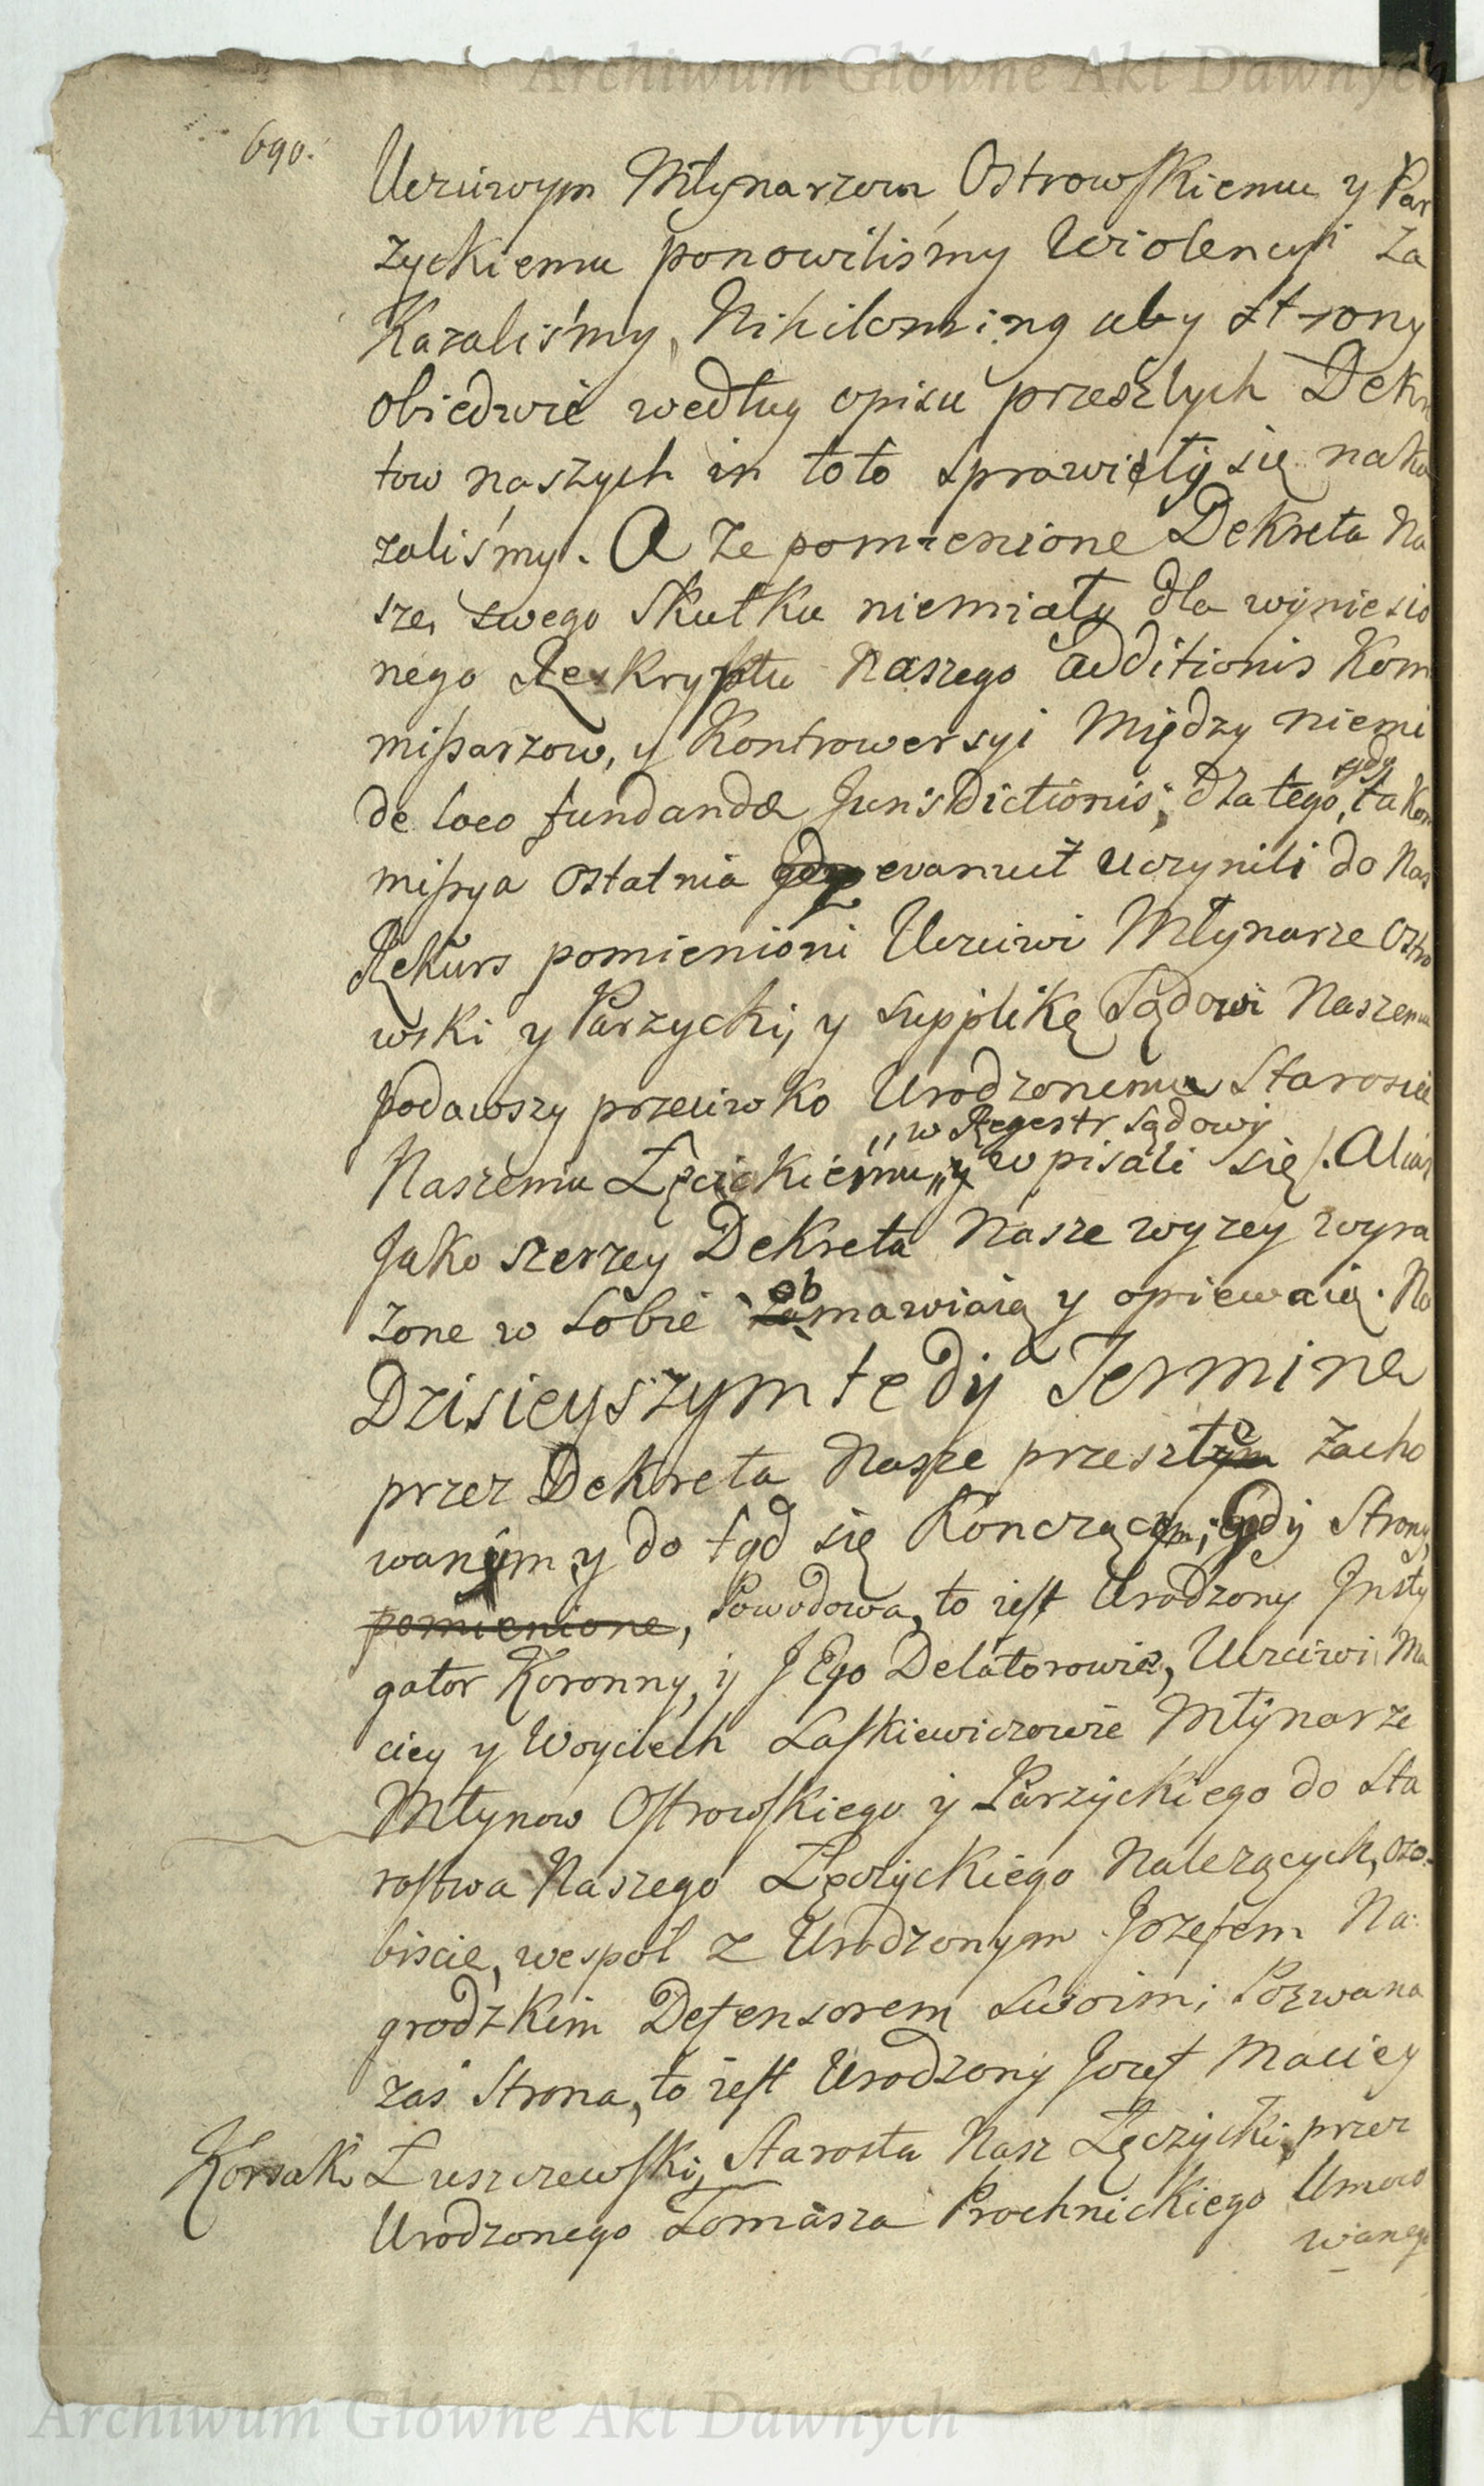 Archiwum Główne Akt Dawnych
690.
Uczciwym Młynarzom Ostrowskiemu y Par
zyckiemu ponowiliśmy Wiolencyi za
Kazaliśmy, Nihilominq aby strony
obiedwie według opisu przeszłych Dekre
tow naszych in toto sprawiły się naka
zaliśmy. A że pomienione Dekreta Na
sze, swego Skutku niemiały dla wyniesio
nego Reskryptu Naszego additionis Kom
missarzow, y Kontrowersyi Między niemi
de loco fundandæ Jurisdictionis; dla tego, gdy ta Kom
missya ostatnia evanuit uczynili do Nas
Rekurs pomienioni Uczciwi Młynarze Ostro
wski y Parzycki, y supplikę Sądowi Naszemu
podawszy przeciwko Urodzonemu Staroscie
„w Regestr sądowy
Naszemu Łęcickiemu„ y wpisali się /. Alias
Jako szerzey Dekreta Nasze wyzey wyra
zone w sobie obmawiaią y opiewaią. Na
Dzisieyszym tedy Terminie
przez Dekreta Nasze przeszłe zacho
wanym y do tąd się Konczącym, Gdy Strony,
pomienione, Powodowa, to iest Urodzony Insty
gator Koronny, y JEgo Delatorowie, Uczciwi Ma
ciey y Woyciech Laskiewiczowie Młynarze
Młynow Ostrowskiego y Parzyckiego do Sta
rostwa Naszego Łęczyckiego Nalezących, oso-
biscie, wespoł z Urodzonym Jozefem Na:
grodzkim Defensorem swoim; Pozwana
zaś Strona, to iest Urodzony Jozef Maciey
Korsak Łuszczewski, Starosta Nasz Łęczycki, przez
Urodzonego Tomasza Prochnickiego Umoco
wanego
Archiwum Główne Akt Dawnych